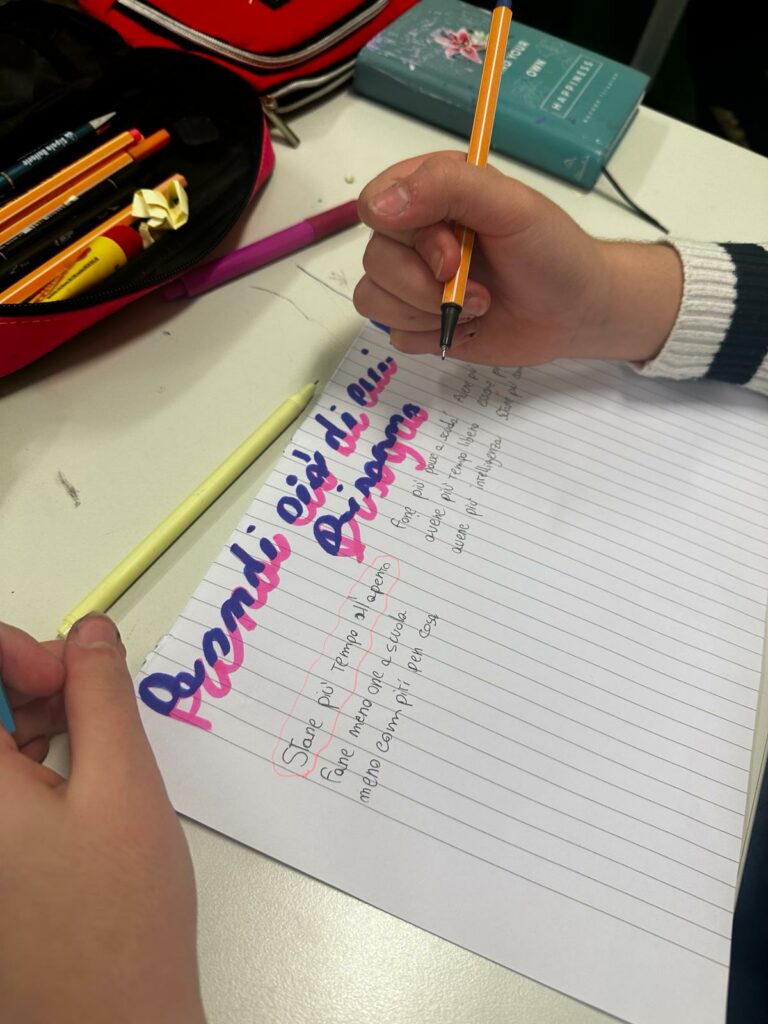 Prendi ciò di cui
Bisogno
Stare più tempo all'aperto
fare meno ore a scuola
meno compiti per casa
fare più pause a scuola
avere più tempo libero
avere più intelligenza
Avere più
essere
stare più
YOUR
OWN
HAPPINESS